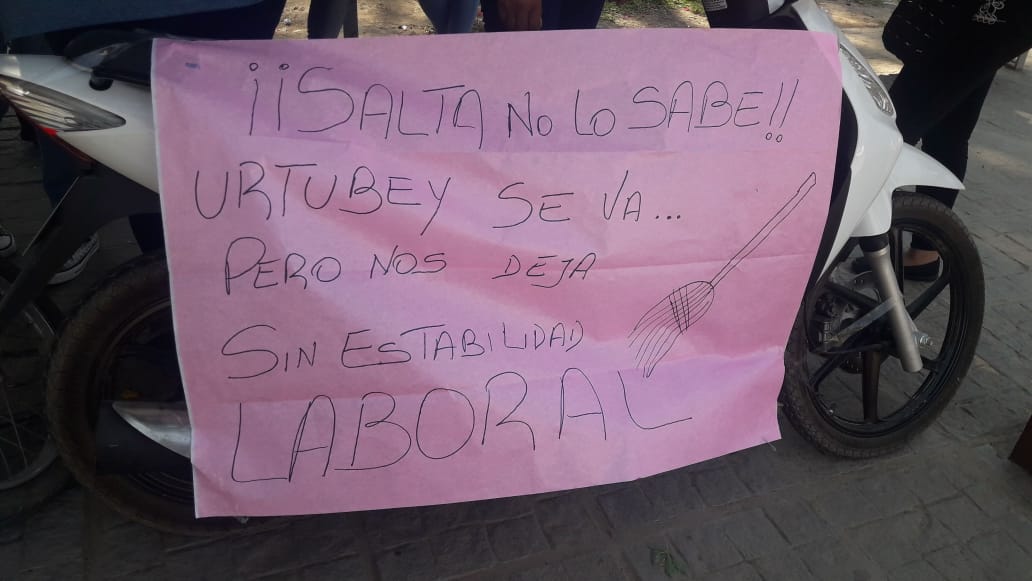 ¡¡SALTA NO LO SABE!!
URTUBEY SE VA...
PERO NOS DEJA
SIN ESTABILIDAD
LABORAL